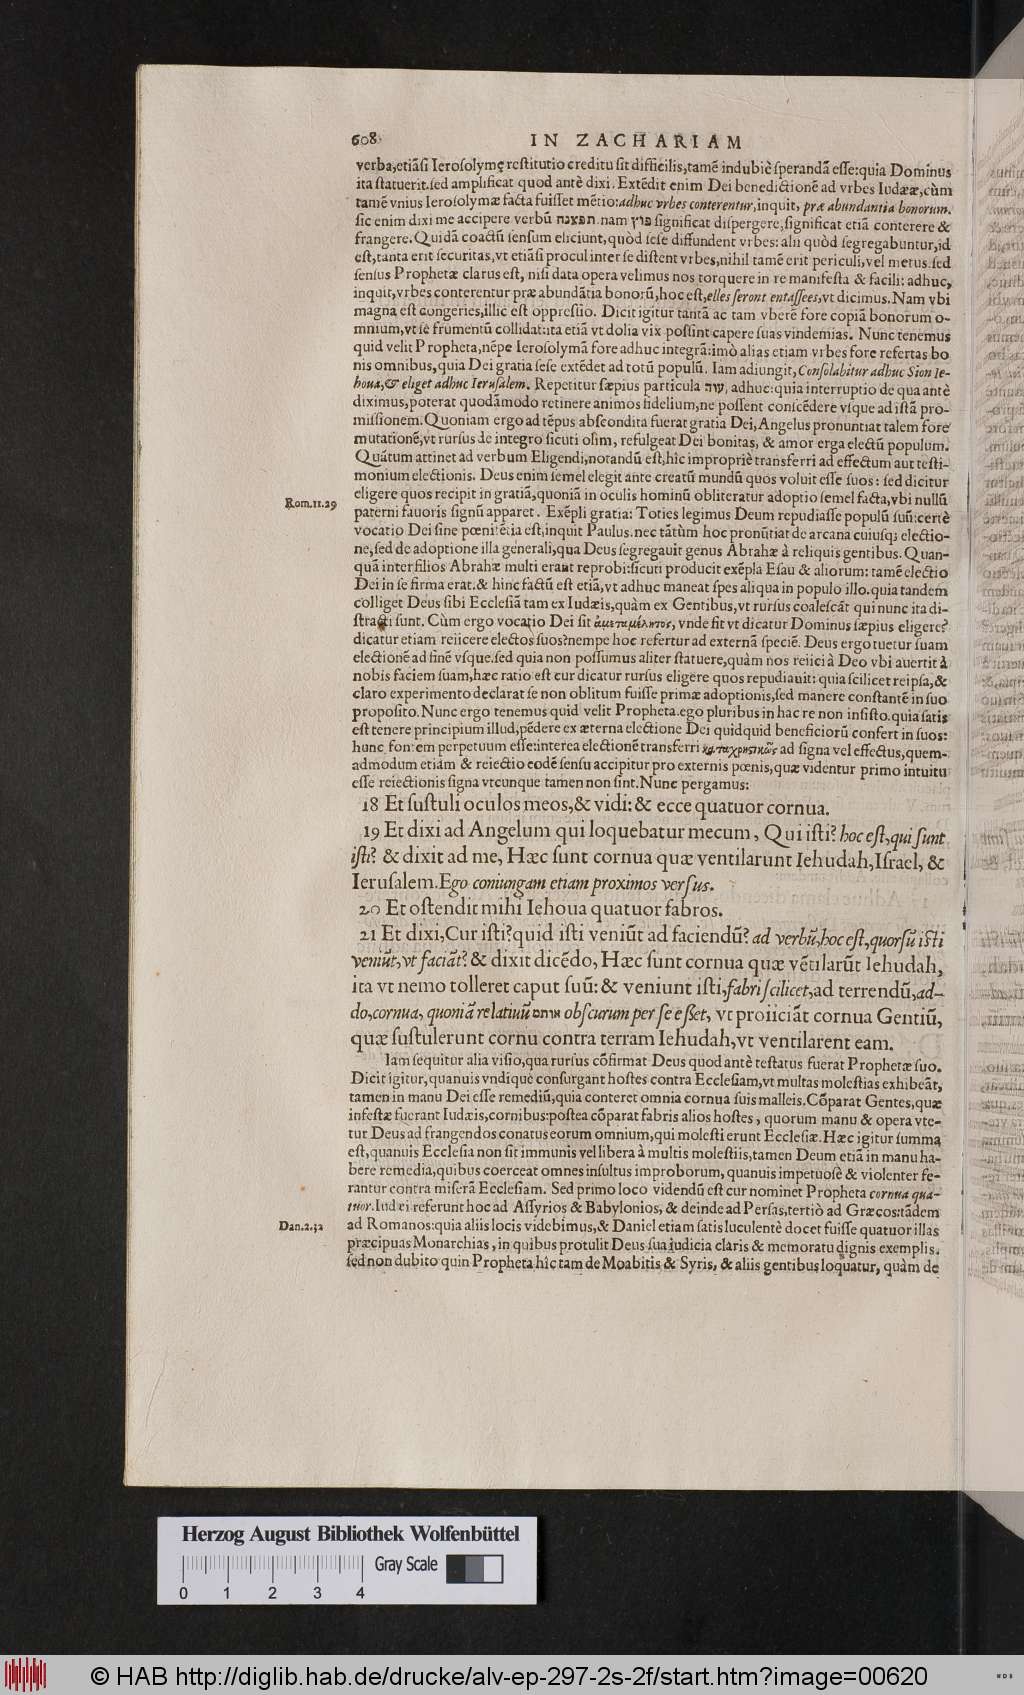 608 IN ZACHARIAM
verba,etiãsi Ierosolymę restitutio creditu sit difficilis,tamẽ indubiè sperandã esse:quia Dominus
ita statuerit.sed amplificat quod antè dixi. Extẽdit enim Dei benedictionẽ ad vrbes Iudææ,cùm
tamẽ vnius Ierosolymæ facta fuisset mẽtio:adhuc vrbes conterentur,inquit, præ abundantia bonorum.
sic enim dixi me accipere verbũ תפצנה. nam פוץ significat dispergere,significat etiã conterere &
frangere. Quidã coactũ sensum eliciunt,quòd sese diffundent vrbes: alii quòd segregabuntur,id
est,tanta erit securitas,vt etiãsi procul inter se distent vrbes,nihil tamẽ erit periculi,vel metus.sed
sensus Prophetæ clarus est, nisi data opera velimus nos torquere in re manifesta & facili: adhuc,
inquit,vrbes conterentur præ abundãtia bonorũ,hoc est,elles seront entassees,vt dicimus. Nam vbi
magna est congeries,illic est oppressio. Dicit igitur tantã ac tam vberẽ fore copiã bonorum o-
mnium,vt se frumentũ collidat:ita etiã vt dolia vix possint capere suas vindemias. Nunc tenemus
quid velit Propheta,nẽpe Ierosolymã fore adhuc integrã:imò alias etiam vrbes fore refertas bo
nis omnibus,quia Dei gratia sese extẽdet ad totũ populũ. Iam adiungit,Consolabitur adhuc Sion Ie-
houa,& eliget adhuc Ierusalem. Repetitur sæpius particula עוד, adhuc:quia interruptio de qua antè
diximus,poterat quodãmodo retinere animos fidelium,ne possent conscẽdere vsque ad istã pro-
missionem. Quoniam ergo ad tẽpus abscondita fuerat gratia Dei,Angelus pronuntiat talem fore
mutationẽ,vt rursus de integro sicuti olim, refulgeat Dei bonitas, & amor erga electũ populum.
Quãtum attinet ad verbum Eligendi,notandũ est,hîc impropriè transferri ad effectum aut testi-
monium electionis. Deus enim semel elegit ante creatũ mundũ quos voluit esse suos: sed dicitur
eligere quos recipit in gratiã,quoniã in oculis hominũ obliteratur adoptio semel facta,vbi nullũ
Rom.11.29
paterni fauoris signũ apparet. Exẽpli gratia: Toties legimus Deum repudiasse populũ suũ:certè
vocatio Dei sine pœnitẽtia est,inquit Paulus. nec tãtùm hoc pronũtiat de arcana cuiusq; electio-
ne,sed de adoptione illa generali,qua Deus segregauit genus Abrahæ à reliquis gentibus. Quan-
quã inter filios Abrahæ multi erant reprobi:sicuti producit exẽpla Esau & aliorum: tamẽ electio
Dei in se firma erat.& hinc factũ est etiã,vt adhuc maneat spes aliqua in populo illo.quia tandem
colliget Deus sibi Ecclesiã tam ex Iudæis,quàm ex Gentibus,vt rursus coalescãt qui nunc ita di-
stracti sunt. Cùm ergo vocatio Dei sit ἀμεταμέλητος, vnde fit vt dicatur Dominus sæpius eligere?
dicatur etiam reiicere electos suos?nempe hoc refertur ad externã speciẽ. Deus ergo tuetur suam
electionẽ ad finẽ vsque.sed quia non possumus aliter statuere,quàm nos reiici à Deo vbi auertit à
nobis faciem suam,hæc ratio est cur dicatur rursus eligere quos repudiauit: quia scilicet reipsa,&
claro experimento declarat se non oblitum fuisse primæ adoptionis,sed manere constantẽ in suo
proposito. Nunc ergo tenemus quid velit Propheta.ego pluribus in hac re non insisto.quia satis
est tenere principium illud,pẽdere ex æterna electione Dei quidquid beneficiorũ confert in suos:
hunc fontem perpetuum esse:interea electionẽ transferri καταχρηστικῶς ad signa vel effectus,quem-
admodum etiam & reiectio eodẽ sensu accipitur pro externis pœnis,quæ videntur primo intuitu
esse reiectionis signa vtcunque tamen non sint. Nunc pergamus:
18 Et sustuli oculos meos,& vidi: & ecce quatuor cornua.
19 Et dixi ad Angelum qui loquebatur mecum, Qui isti? hoc est,qui sunt
isti? & dixit ad me, Hæc sunt cornua quæ ventilarunt Iehudah,Israel, &
Ierusalem. Ego coniungam etiam proximos versus.
20 Et ostendit mihi Iehoua quatuor fabros.
21 Et dixi,Cur isti?quid isti veniũt ad faciendũ? ad verbũ,hoc est,quorsũ isti
veniũt,vt faciãt? & dixit dicẽdo, Hæc sunt cornua quæ vẽtilarũt Iehudah,
ita vt nemo tolleret caput suũ: & veniunt isti,fabri scilicet,ad terrendũ,ad-
do,cornua, quoniã relatiuũ אותם obscurum per se esset, vt proiiciãt cornua Gentiũ,
quæ sustulerunt cornu contra terram Iehudah,vt ventilarent eam.
Iam sequitur alia visio,qua rursus cõfirmat Deus quod antè testatus fuerat Prophetæ suo.
Dicit igitur,quanuis vndique consurgant hostes contra Ecclesiam,vt multas molestias exhibeãt,
tamen in manu Dei esse remediũ,quia conteret omnia cornua suis malleis. Cõparat Gentes,quæ
infestæ fuerant Iudæis,cornibus:postea cõparat fabris alios hostes, quorum manu & opera vte-
tur Deus ad frangendos conatus eorum omnium,qui molesti erunt Ecclesiæ. Hæc igitur summa
est,quanuis Ecclesia non sit immunis vel libera à multis molestiis,tamen Deum etiã in manu ha-
bere remedia,quibus coerceat omnes insultus improborum, quanuis impetuosè & violenter fe-
rantur contra miserã Ecclesiam. Sed primo loco videndũ est cur nominet Propheta cornua qua-
tuor. Iudæi referunt hoc ad Assyrios & Babylonios, & deinde ad Persas,tertiò ad Græcos:tãdem
Dan.2.32
ad Romanos:quia aliis locis videbimus,& Daniel etiam satis luculentè docet fuisse quatuor illas
præcipuas Monarchias, in quibus protulit Deus sua iudicia claris & memoratu dignis exemplis.
sed non dubito quin Propheta hîc tam de Moabitis & Syris, & aliis gentibus loquatur, quàm de
Herzog August Bibliothek Wolfenbüttel
Gray Scale
0 1 2 3 4
© HAB http://diglib.hab.de/drucke/alv-ep-297-2s-2f/start.htm?image=00620